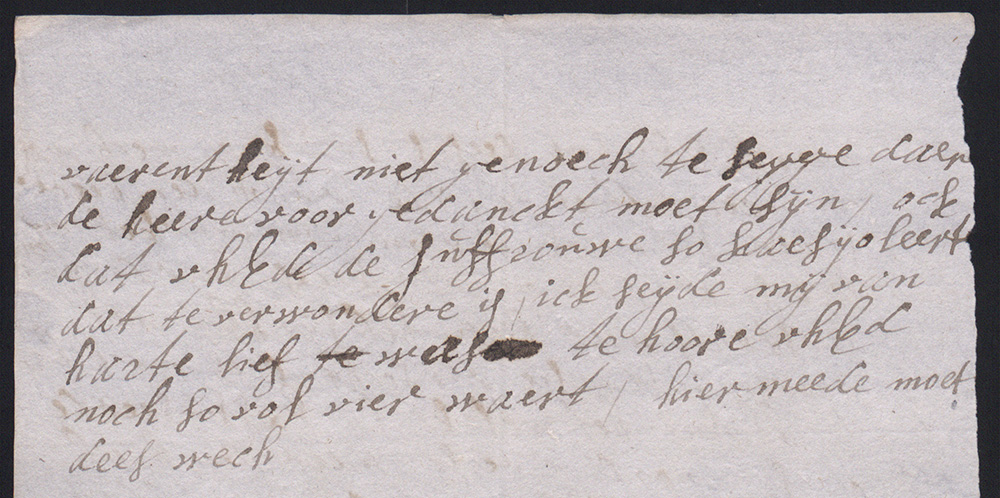 vaerentheyt niet genoech te segge daer
de heere voor gedanckt moet sijn, ock
dat uhEd de Juffrouwe so
dat te verwondere is, ick seyde mij van
harte lief te wees te hoore uhEd
noch so vol vier waert, hier meede moet
dees wech